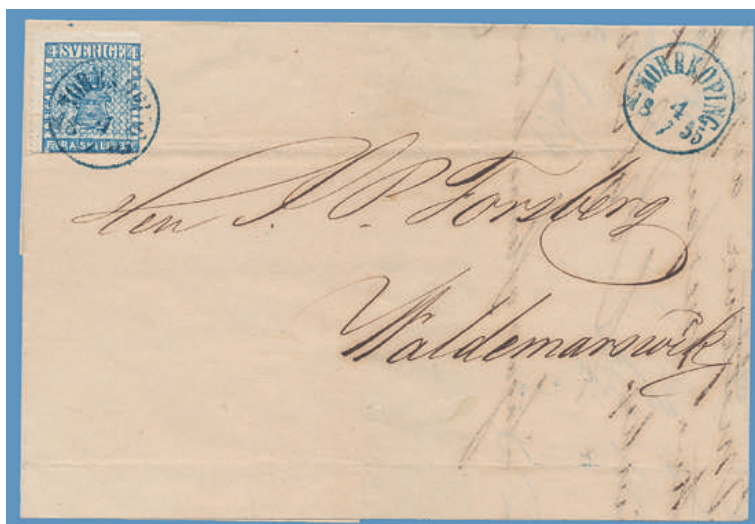 SVERIGE
FYRA SKILL. BCO
NORRKÖPING
4
7
1855
Herr J. P. Forsberg
Waldemarswik